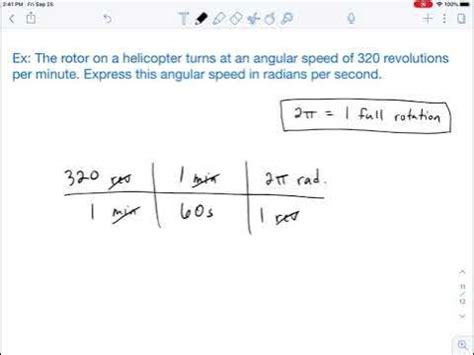 2:41 PM Fri Sep 25
Ex: The rotor on a helicopter turns at an angular speed of 320 revolutions
per minute. Express this angular speed in radians per second.
2π = 1 full rotation
320 rev 1 min 2π rad.
1 min 60s 1 rev
11
12